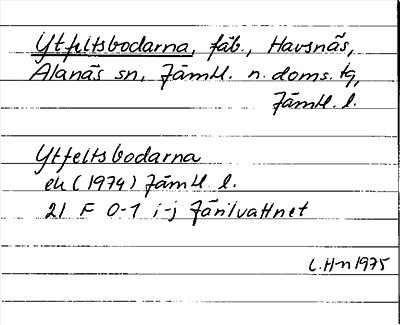 Ytfeltsbodarna, fäb., Havsnäs,
Alanäs sn, Jämtl. n. doms. tg,
Jämtl. l.
Ytfeltsbodarna
ek (1974) Jämtl l.
21 F 0-1 i-j Järilvattnet
C.H-n 1975